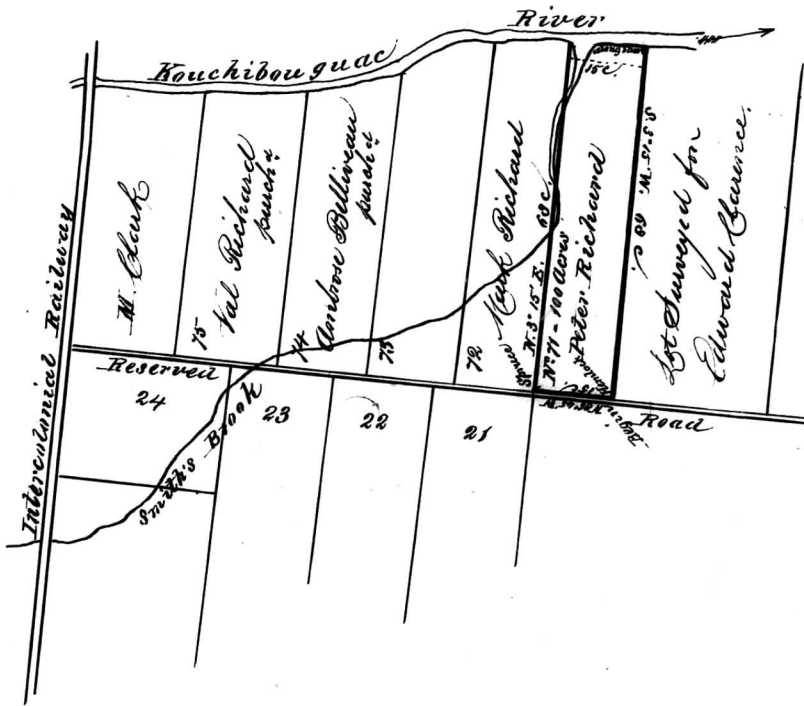 River
Kouchibouguac
15 c.
Intercolonial Railway
W. Clark
75
Val Richard
purchd
74
Ambrose Belliveau
purchd
73
72
Mark Richard
Spruce N. 3° 15' E. 68 c.
No 71 - 100 Acres
Peter Richard
S. 3° 15' W. 60 c.
Lot Surveyed for
Edward Clarence.
Reserved
Road
Begin
Hemlock
24
23
22
21
Smith's Brook